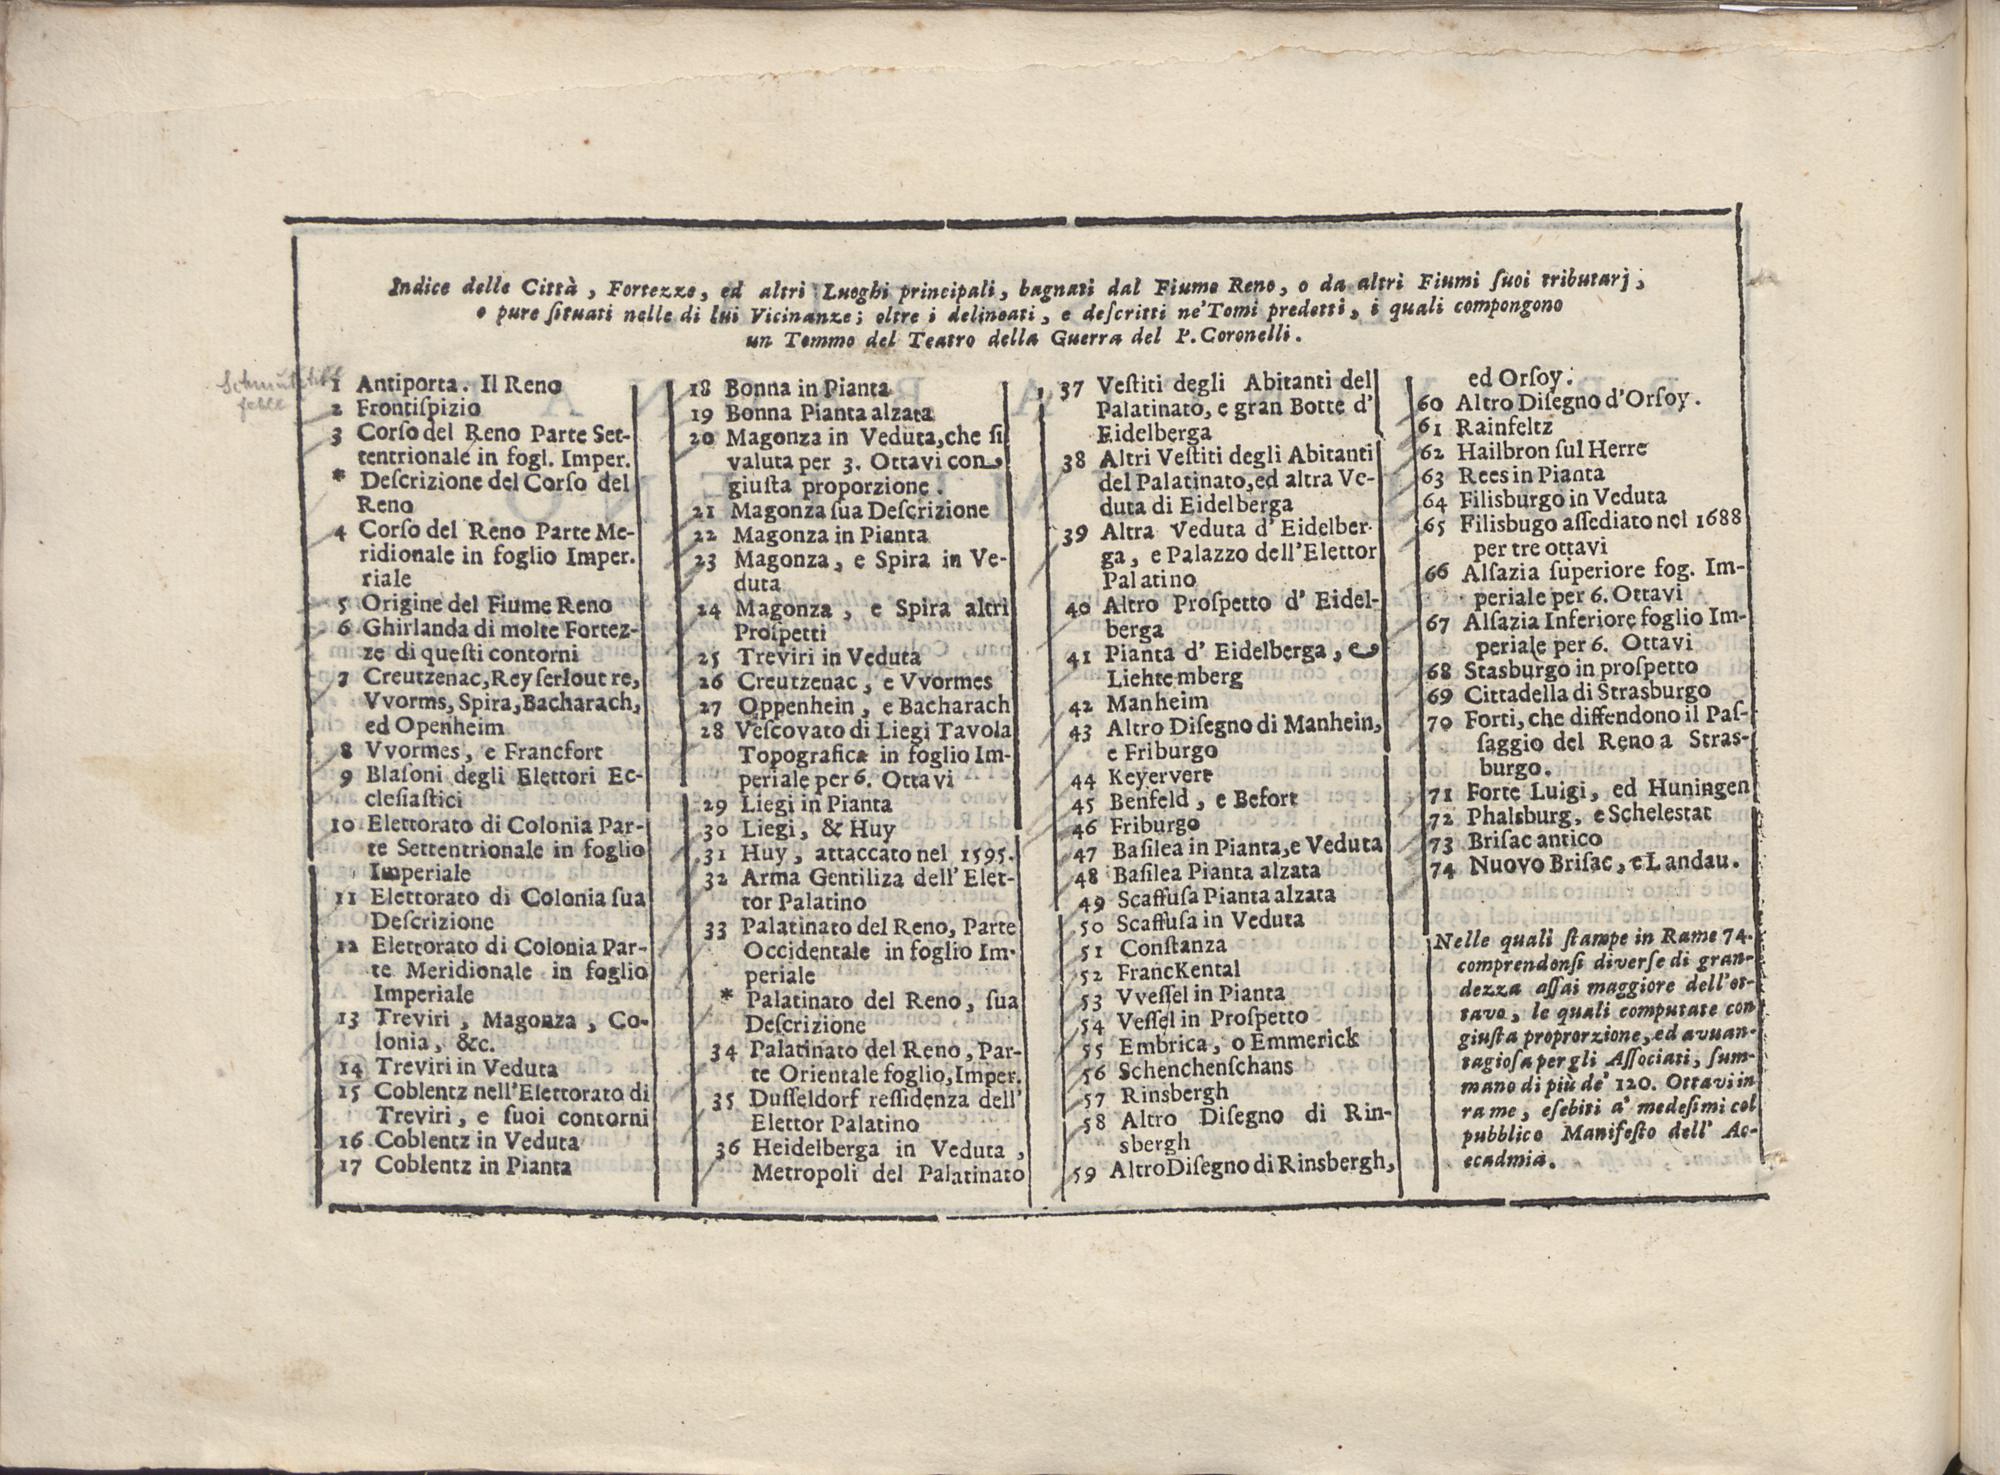 Indice delle Città, Fortezze, ed altri Luoghi principali, bagnati dal Fiume Reno, o da altri Fiumi ſuoi tributarj;
o pure ſituati nelle di lui Vicinanze; oltre i delineati, e deſcritti ne' Tomi predetti, i quali compongono
un Tommo del Teatro della Guerra del P. Coronelli.
1 Antiporta. Il Reno
2 Frontiſpizio
3 Corſo del Reno Parte Set-
tentrionale in fogl. Imper.
* Deſcrizione del Corſo del
Reno
4 Corſo del Reno Parte Me-
ridionale in foglio Imper.
riale
5 Origine del Fiume Reno
6 Ghirlanda di molte Fortez-
ze di queſti contorni
7 Creutzenac, Rey ſerlout re,
Vvorms, Spira, Bacharach,
ed Openheim
8 Vvormes, e Francfort
9 Blaſoni degli Elettori Ec-
cleſiaſtici
10 Elettorato di Colonia Par-
te Settentrionale in foglio
Imperiale
11 Elettorato di Colonia ſua
Deſcrizione
12 Elettorato di Colonia Par-
te Meridionale in foglio
Imperiale
13 Treviri, Magonza, Co-
lonia, &c.
14 Treviri in Veduta
15 Coblentz nell'Elettorato di
Treviri, e ſuoi contorni
16 Coblentz in Veduta
17 Coblentz in Pianta
18 Bonna in Pianta
19 Bonna Pianta alzata
20 Magonza in Veduta, che ſi
valuta per 3. Ottavi con
giuſta proporzione.
21 Magonza ſua Deſcrizione
22 Magonza in Pianta
23 Magonza, e Spira in Ve-
duta
24 Magonza, e Spira altri
Proſpetti
25 Treviri in Veduta
26 Creutzenac, e Vvormes
27 Oppenhein, e Bacharach
28 Veſcovato di Liegi Tavola
Topografica in foglio Im-
periale per 6. Ottavi
29 Liegi in Pianta
30 Liegi, & Huy
31 Huy, attaccato nel 1595.
32 Arma Gentiliza dell'Elet-
tor Palatino
33 Palatinato del Reno, Parte
Occidentale in foglio Im-
periale
* Palatinato del Reno, ſua
Deſcrizione
34 Palatinato del Reno, Par-
te Orientale foglio, Imper.
35 Duſſeldorf reſſidenza dell'
Elettor Palatino
36 Heidelberga in Veduta,
Metropoli del Palatinato
37 Veſtiti degli Abitanti del
Palatinato, e gran Botte d'
Eidelberga
38 Altri Veſtiti degli Abitanti
del Palatinato, ed altra Ve-
duta di Eidelberga
39 Altra Veduta d' Eidelber-
ga, e Palazzo dell'Elettor
Palatino
40 Altro Proſpetto d' Eidel-
berga
41 Pianta d' Eidelberga, e
Liehtemberg
42 Manheim
43 Altro Diſegno di Manhein,
e Friburgo
44 Keyervert
45 Benfeld, e Befort
46 Friburgo
47 Baſilea in Pianta, e Veduta
48 Baſilea Pianta alzata
49 Scaffuſa Pianta alzata
50 Scaffuſa in Veduta
51 Conſtanza
52 FrancKental
53 Vveſſel in Pianta
54 Veſſel in Proſpetto
55 Embrica, o Emmerick
56 Schenchenſchans
57 Rinsbergh
58 Altro Diſegno di Rin-
sbergh
59 Altro Diſegno di Rinsbergh,
ed Orſoy.
60 Altro Diſegno d'Orſoy.
61 Rainfeltz
62 Hailbron ſul Herre
63 Rees in Pianta
64 Filisburgo in Veduta
65 Filisbugo aſſediato nel 1688
per tre ottavi
66 Alſazia ſuperiore fog. Im-
periale per 6. Ottavi
67 Alſazia Inferiore foglio Im-
periale per 6. Ottavi
68 Stasburgo in proſpetto
69 Cittadella di Strasburgo
70 Forti, che diffendono il Paſ-
ſaggio del Reno a Stras-
burgo.
71 Forte Luigi, ed Huningen
72 Phalsburg, e Scheleſtat
73 Briſac antico
74 Nuovo Briſac, e Landau.
Nelle quali ſtampe in Rame 74.
comprendonſi diverſe di gran-
dezza aſſai maggiore dell'ot-
tavo, le quali computate con
giuſta proprorzione, ed avuan-
tagioſa per gli Aſſociati, ſum-
mano di più de' 120. Ottavi in
rame, eſebiti a' medeſimi col
pubblico Manifeſto dell' Ac-
ecadmia.